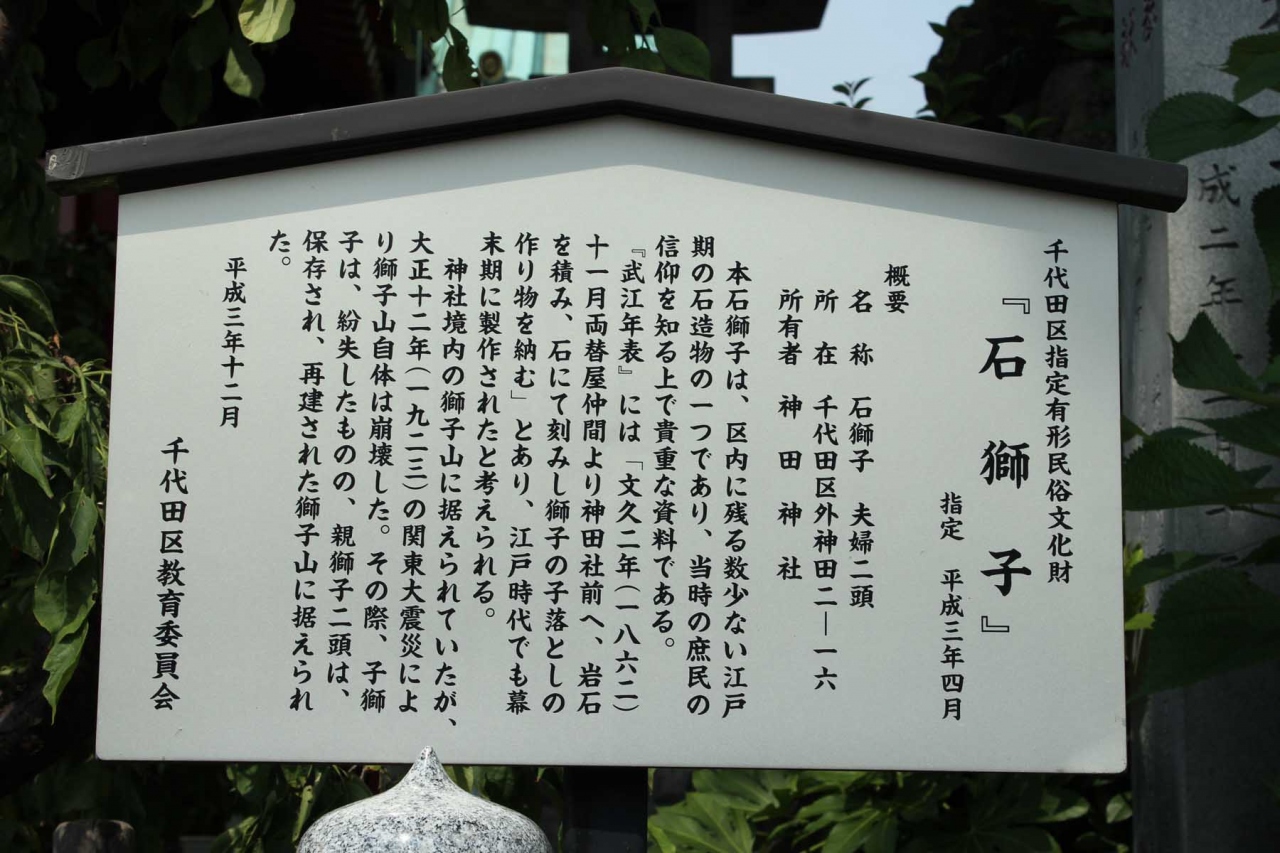 千代田区指定有形民俗文化財
『石獅子』
指定　平成三年四月
概要
名　称　石獅子　夫婦二頭
所　在　千代田区外神田二―一六
所有者　神田神社
本石獅子は、区内に残る数少ない江戸
期の石造物の一つであり、当時の庶民の
信仰を知る上で貴重な資料である。
『武江年表』には「文久二年（一八六二）
十一月両替屋仲間より神田社前へ、岩石
を積み、石にて刻みし獅子の子落としの
作り物を納む」とあり、江戸時代でも幕
末期に製作されたと考えられる。
神社境内の獅子山に据えられていたが、
大正十二年（一九二三）の関東大震災によ
り獅子山自体は崩壊した。その際、子獅
子は、紛失したものの、親獅子二頭は、
保存され、再建された獅子山に据えられ
た。
平成三年十二月
千代田区教育委員会
成二年